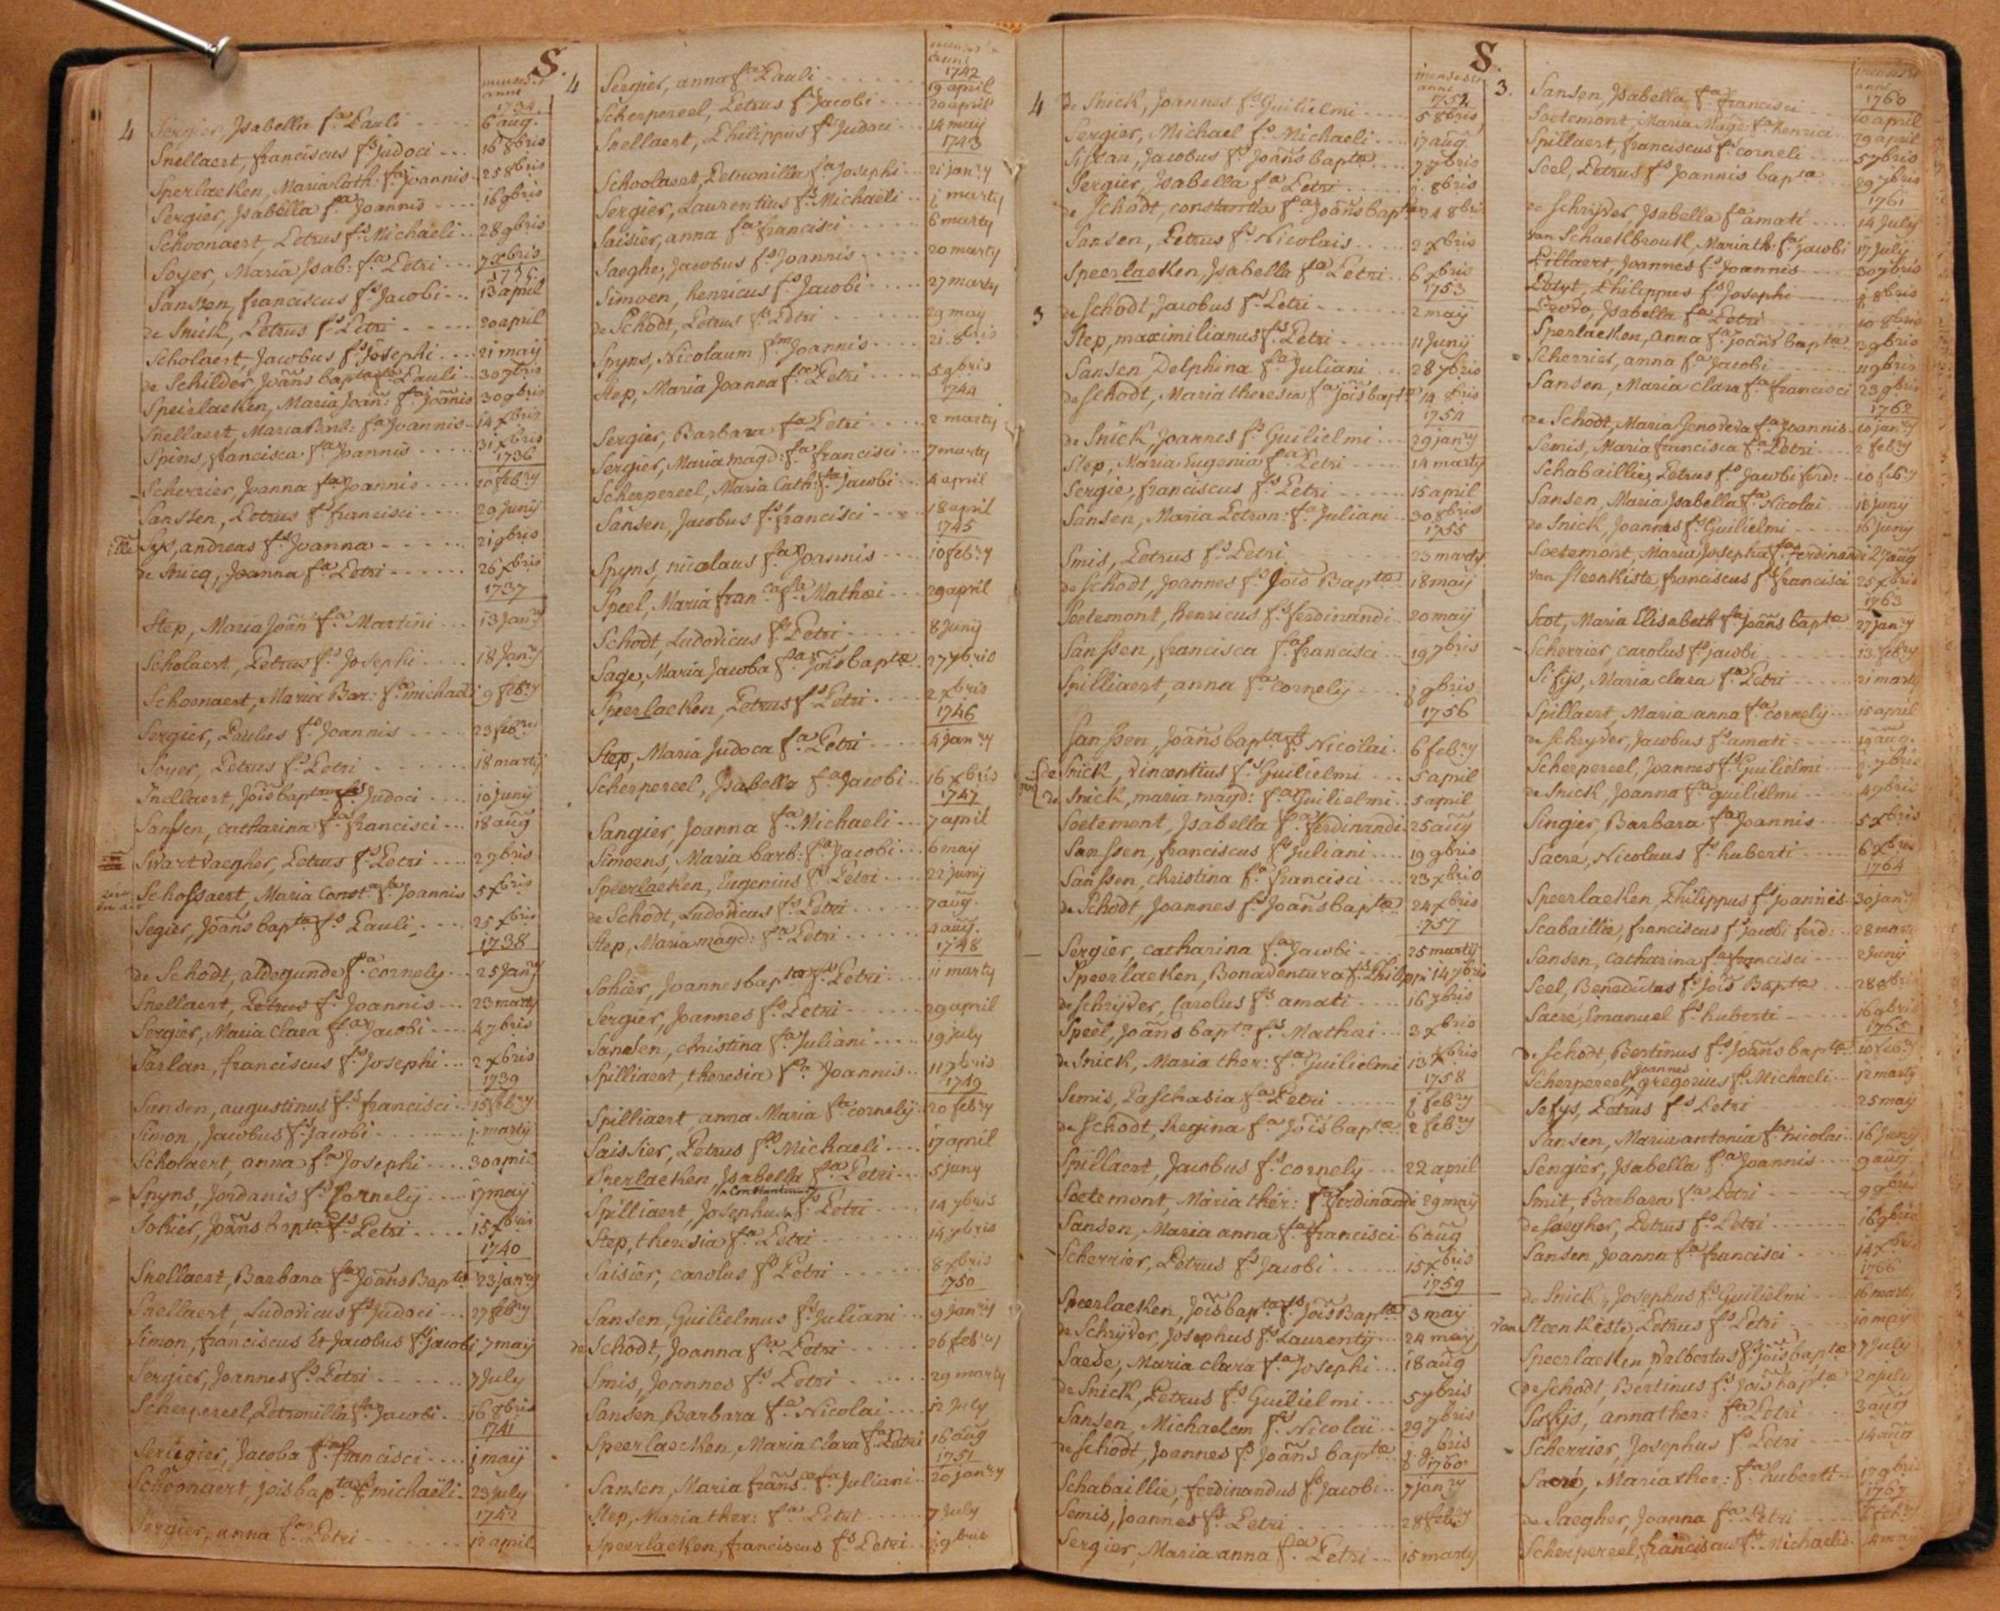 S.
1734
4 Sergier, Isabella fa Pauli 6 aug.
Snellaert, franciscus fs Judoci 16 8bris
Sperlaeken, Maria Cath: fa Joannis 25 8bris
Sergier, Isabella fa Joannis 16 9bris
Schoonaert, Petrus fs Michaeli 28 9bris
Soyer, Maria Isab: fa Petri 7 xbris
Sanssen, franciscus fs Jacobi 13 april
de Snick, Petrus fs Petri 20 april
Scholaert, Jacobus fs Josephi 21 maij
de Schilder, Joans bapta fs Pauli 30 7bris
Speirlaeken, Maria Joan: fa Joanis 30 9bris
Snellaert, Maria fa Joannis 14 xbris
Spins, francisca fa Joannis 31 xbris
1736
Scherrier, Joanna fa Joannis 10 febry
Sanssen, Petrus fs francisci 29 Junij
Syx, andreas fs Joanna 21 9bris
de Snicq, Joanna fa Petri 26 xbris
1737
Step, Maria Joan fa Martini 13 Janry
Scholaert, Petrus fs Josephi 18 Janry
Schoonaert, Maria Bar: fa michaeli 9 febry
Sergier, Paulus fs Joannis 23 febry
Soyer, Petrus fs Petri 18 martij
Snellaert, Jois baptae fs Judoci 10 junij
Sanssen, catharina fa francisci 18 aug
Swartvaegher, Petrus fs Petri 2 7bris
Schossaert, Maria Const: fa Joannis 5 xbris
Segier, Joans bapta fs Pauli 25 xbris
1738
de Schodt, aldegunde fa cornely 25 Janry
Snellaert, Petrus fs Joannis 23 marty
Sergier, Maria Clara fa Jacobi 4 7bris
Sarlan, franciscus fs Josephi 2 xbris
1739
Sansen, augustinus fs francisci 15 febry
Simon, Jacobus fs Jacobi j marty
Scholaert, anna fa Josephi 30 april
Spyns, Jordanis fs Cornelij 17 may
Sohier, Joans bapta fs Petri 15 xbris
1740
Snellaert, Barbara fa Joans Bapta 23 janry
Snellaert, Ludovicus fs Judoci 27 febry
Simon, franciscus Et Jacobus fs Jacobi 7 maij
Sergier, Joannes fs Petri 7 July
Scherpereel, Petronilla fa Jacobi 16 8bris
1741
Sergier, Jacoba fa francisci j maij
Schoonaert, jois bapta fs michaëli 23 july
1742
Sergier, anna fa Petri 12 april
1742
4 Sergier, anna fa Pauli 19 april
Scherpereel, Petrus fs Jacobi 20 april
Snellaert, Philippus fs Judoci 14 may
1743
Schoolaert, Petronilla fa Josephi 21 janry
Sergier, Laurentius fs Michaëli j marty
Saisier, anna fa francisci 6 marty
Saeghe, Jacobus fs Joannis 20 marty
Simoen, henricus fs Jacobi 27 marty
de Schodt, Petrus fs Petri 29 may
Spyns, Nicolaum fm Joannis 21 8bris
Step, Maria Joanna fa Petri 5 9bris
1744
Sergier, Barbara fa Petri 2 martij
Sergier, Maria magd: fa francisci 7 marty
Scherpereel, Maria Cath: fa Jacobi 4 april
Sansen, Jacobus fs francisci 18 april
1745
Spyns, nicolaus fs Joannis 10 febry
Speel, Maria franca fa Mathæi 29 april
Schodt, Ludovicus fs Petri 8 Junij
Sage, Maria Jacoba fa Jois baptæ 27 7bris
Speerlaeken, Petrus fs Petri 2 xbris
1746
Step, Maria Judoca fa Petri 4 janry
Scherpereel, Isabella fa Jacobi 16 xbris
1747
Sangier, Joanna fa Michaeli 7 april
Simoens, Maria barb: fa Jacobi 6 may
Speerlaeken, Eugenius fs Petri 22 junij
de Schodt, Ludovicus fs Petri 7 aug.
Step, Maria magd: fa Petri 9 aug.
1748
Sohier, Joannes bapta fs Petri 11 marty
Sergier, Joannes fs Petri 29 april
Sansen, christina fa Juliani 19 july
Spilliaert, theresia fa Joannis 11 7bris
1749
Spilliaert, anna Maria fa cornelij 20 febry
Saissier, Petrus fs Michaeli 17 april
Sperlaeken, Isabella fa Petri 5 juny
Constantinus
Spilliaert Josephus fs Petri 14 7bris
Step, theresia fa Petri 14 7bris
Saisier, carolus fs Petri 8 xbris
1750
Sansen, Guilielmus fs Juliani 9 janry
de Schodt, Joanna fa Petri 26 febry
Smis, Joannes fs Petri 29 marty
Sansen Barbara fa Nicolai 12 July
Speerlaecken, Maria Clara fa Petri 16 aug
1751
Sansen, Maria frans ca fa Juliani 20 janry
Step, Maria ther: fa Petri 7 July
Speerlaeken, franciscus fs Petri
S.
1752
4 de Snick, Joannes fs Guilielmi 5 8bris
Sergier, Michael fs Michaeli 17 aug
Jacobus fs Joans baptæ 7 7bris
Sergier, Isabella fa Petri j 8bris
de Schodt, constantia fa Joans baptæ 24 8bris
Sansen, Petrus fs Nicolais 2 xbris
Speerlaeken, Isabella fa Petri 6 xbris
1753
3 de Schodt, Jacobus fs Petri 2 maij
Step, maximilianus fs Petri 11 Junij
Sansen Delphina fa Juliani 28 7bris
de Schodt, Maria theresia fa Jois baptæ 14 8bris
1754
de Snick Joannes fs Guilielmi 29 janry
Step, Maria Eugenia fa Petri 14 marty
Sergie, franciscus fs Petri 15 april
Sansen, Maria Petron: fa Juliani 30 8bris
1755
Smis, Petrus fs Petri 23 marty
de Schodt, Joannes fs Jois Baptæ 18 maij
Soetemont, henricus fs ferdinandi 20 maij
Sanssen, francisca fa francisci 19 7bris
Spilliaert, anna fa cornelij j 9bris
1756
Sanssen, Joans bapta fs Nicolai 6 febry
de Snick, vincentius fs Guilielmi 5 april
de Snick, maria magd: fa Guilielmi 5 april
Soetemont, Isabella fa ferdinandi 25 aug
Sanssen, franciscus fs Juliani 19 9bris
Sanssen, christina fa francisci 23 xbris
de Schodt, Joannes fs Joans baptæ 24 xbris
1757
Sergier, catharina fa Jacobi 25 martij
Speerlaeken, Bonaventura fs Philippi 14 7bris
de Schrijver, Carolus fs amati 16 7bris
Speel, Joans bapta fs Mathæi 2 xbris
de Snick, Maria ther: fa Guilielmi 13 xbris
1758
Semis, Paschasia fa Petri j febry
de Schodt, Regina fa Jois baptæ 2 febry
Spillaert, Jacobus fs cornelij 22 april
Soetemont, Maria ther: fa ferdinandi 29 maij
Sansen, Maria anna fa francisci 6 aug
Scherrier, Petrus fs Jacobi 15 xbris
1759
Speerlaeken, Jois bapta fs Jois Baptæ 3 may
de Schrijver, Josephus fs Laurentij 24 maij
Saede, Maria clara fa Josephi 18 aug
de Snick, Petrus fs Guilielmi 5 7bris
Sansen, Michaelem fs Nicolai 29 7bris
de Schodt, Joannes fs Joans baptæ 9bris
1760
Schabaillie, ferdinandus fs Jacobi 7 janry
Semis, Joannes fs Petri 28 febry
Sergier, Maria anna fa Petri 15 marty
1760
3. Sansen, Isabella fa francisci 10 april
Soetemont, Maria Magd: fa henrici 29 april
Spillaert, franciscus fs corneli 5 7bris
Soel, Petrus fs Joannis bapta 29 7bris
1761
de Schrijver, Isabella fa amati 14 July
van Schaekbrouk, Maria th: fa Jacobi 17 july
Pillaert, Joannes fs Joannis 30 7bris
Philippus fs Josephi 8bris
Isabella fa Petri 10 8bris
Sperlaeken, Anna fa joans baptæ 2 9bris
Scherrier, anna fa Jacobi 11 9bris
Sansen, Maria clara fa francisci 23 9bris
1762
de Schodt, Maria Jenoveva fa Joannis 10 janry
Semis, Maria francisca fa Petri 2 febry
Schabaillie, Petrus fs Jacobi ferd: 10 febry
Sansen, Maria Isabella fa Nicolai 16 junij
de Snick, Joannes fs Guilielmi 16 juny
Soetemont, Maria Josepha fa ferdinandi 27 aug
van Steenkiste, franciscus fs francisci 25 xbris
1763
Scot, Maria Elisabeth fa joans baptæ 27 janry
Scherrier, carolus fs jacobi 13 febry
Sifys, Maria clara fa Petri 21 marty
Spillaert, Maria anna fa cornelij 15 april
de schryver, Jacobus fs amati 19 aug.
Scherpereel, Joannes fs Guilielmi 2 7bris
de Snick, Joanna fa guilielmi 4 7bris
Singier, Barbara fa Joannis 5 xbris
Sacré, Nicolaus fs huberti 6 xbris
1764
Speerlaeken, Philippus fs joannis 30 janry
Scabaillie, franciscus fs jacobi ferd: 28 marty
Sansen, catharina fa francisci 2 Junij
Seel, Benedictus fs jois Baptæ 28 8bris
Sacré, Emanuel fs huberti 16 9bris
1765
de Schodt, Bertinus fs Joans baptæ 10 febry
Joannes
Scherpereel, gregorius fs Michaeli 12 marty
Sefys, Petrus fs Petri 25 maij
Sansen, Maria antonia fa nicolai 16 Junij
Sengier, Isabella fa Joannis 9 aug
Smit, Barbara fa Petri 9 9bris
de Saegher, Petrus fs Petri 16 9bris
Sansen, Joanna fa francisci 14 xbris
1766
de Snick, Josephus fs Guilielmi 16 marty
van Steenkiste, Petrus fs Petri 10 maij
Speerlaeken, Dalbertus fs jois baptæ 7 July
de Schodt, Bertinus fs Jois baptæ
Sufys, anna ther: fa Petri 3 aug
Scherrier, Josephus fs Petri 14 aug
Sacré, Maria ther: fa huberti 17 9bris
1767
de Saegher, Joanna fa Petri febry
Scherpereel, franciscus fs Michaelis 14 maij